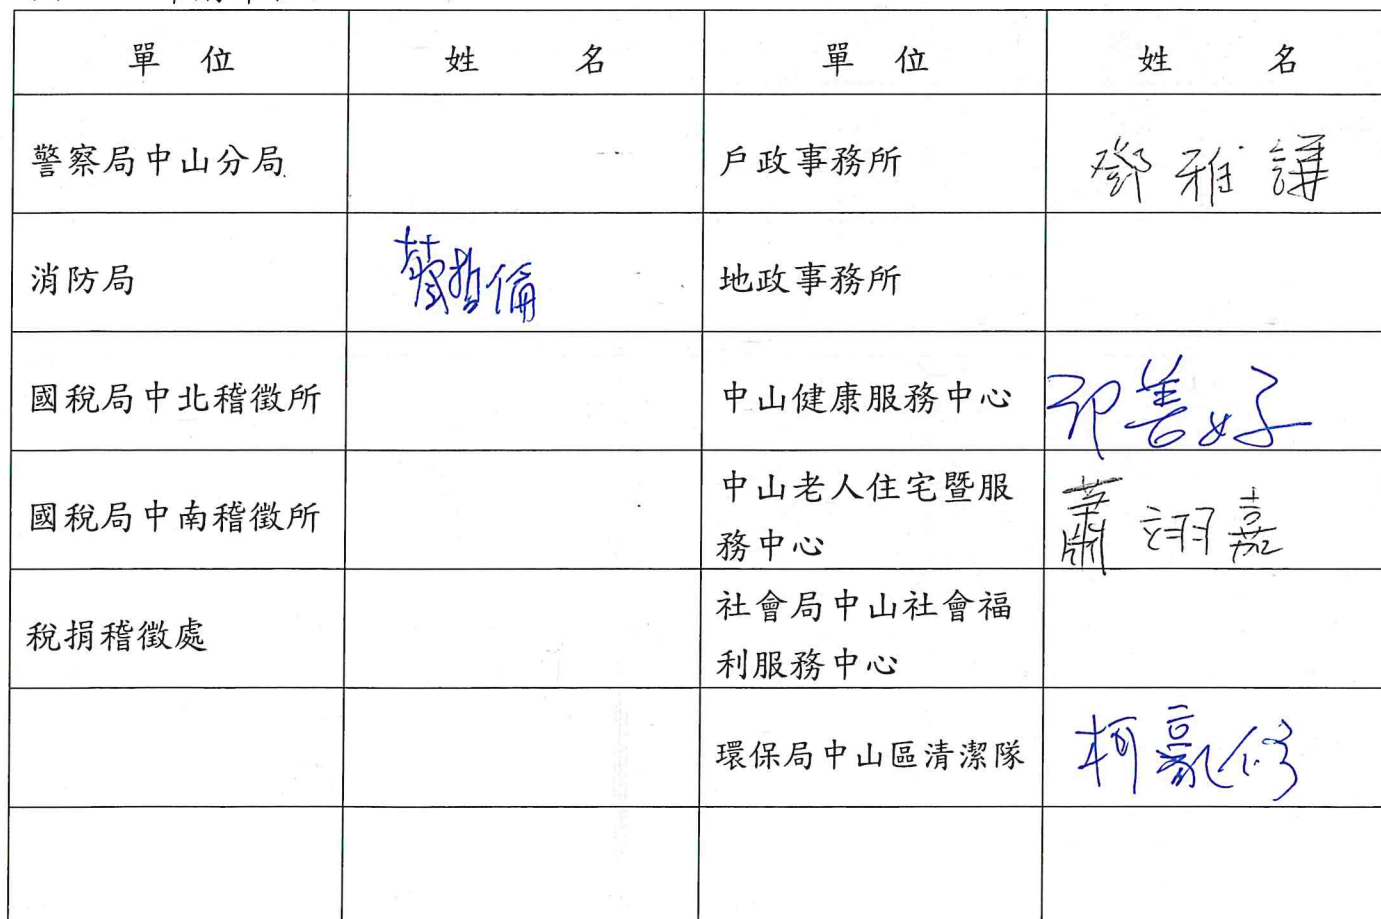 單 位 姓 名 單 位 姓 名
警察局中山分局 戶政事務所 鄧雅譁
消防局 哲倫 地政事務所
國稅局中北稽徵所 中山健康服務中心 邱善好
國稅局中南稽徵所 中山老人住宅暨服
務中心 蕭翊嘉
稅捐稽徵處 社會局中山社會福
利服務中心
環保局中山區清潔隊 柯豪修